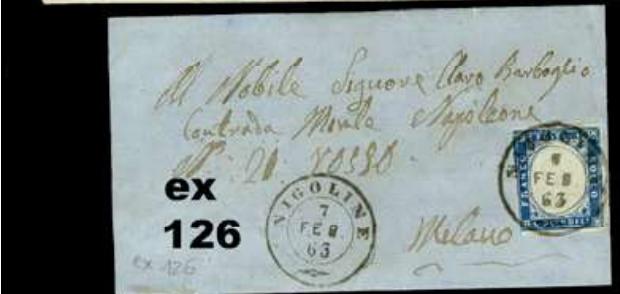 Al Nobile Signore Claro Barboglio
Contrada Monte Napoleone
N.° 21 ROSSO.
Milano
ex
126
ex 126
NIGOLINE
7
FEB.
63
7
FEB
63
FRANCO
BOLLO